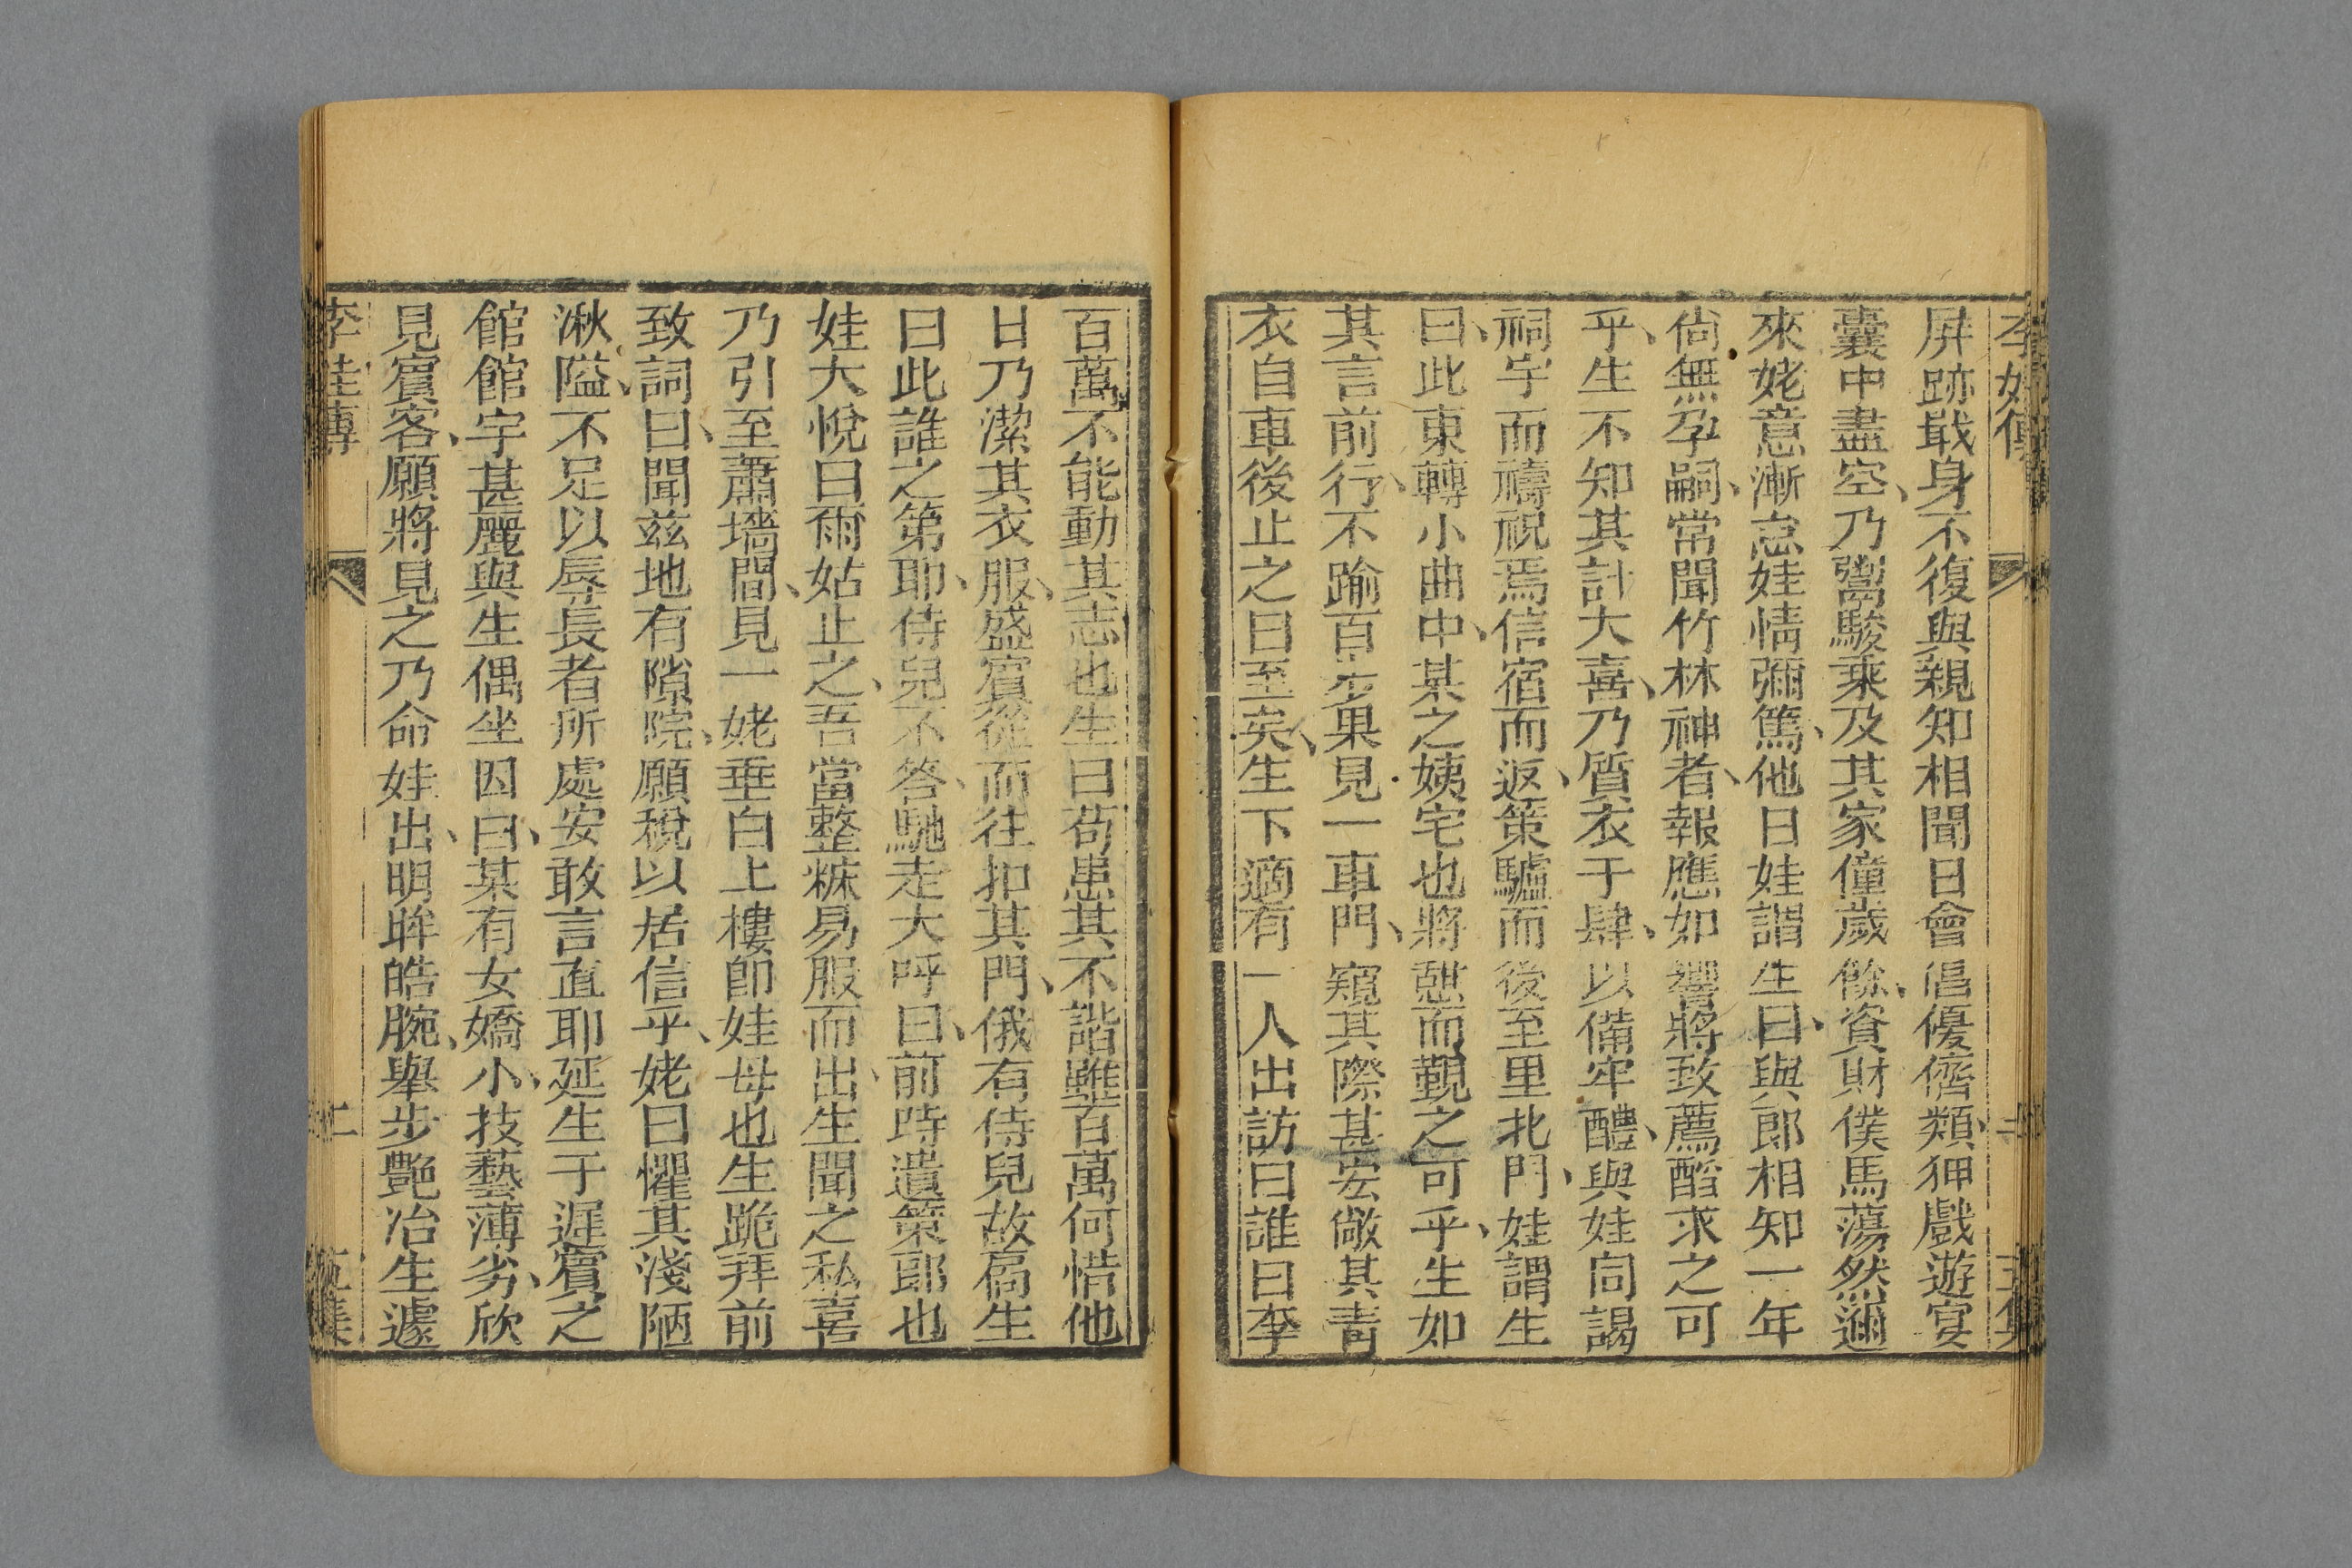 屏跡戢身不復與親知相聞日會倡優儕類狎戲遊宴
囊中盡空乃鬻駿乘及其家僮歲餘資財僕馬蕩然邇
來姥意漸怠娃情彌篤他日娃謂生曰與郎相知一年
尚無孕嗣常聞竹林神者報應如響將致薦酹求之可
乎生不知其計大喜乃質衣于肆以備牢醴與娃同謁
祠宇而禱祝焉信宿而返策驢而後至里北門娃謂生
曰此東轉小曲中某之姨宅也將憩而覲之可乎生如
其言前行不踰百步果見一車門窺其際甚宏敞其青
衣自車後止之曰至矣生下適有一人出訪曰誰曰李
百萬不能動其志也生曰苟患其不諧雖百萬何惜他
日乃潔其衣服盛賓從而往扣其門俄有侍兒啟扃生
曰此誰之第耶侍兒不答馳走大呼曰前時遺策郎也
娃大悅曰爾姑止之吾當整粧易服而出生聞之私喜
乃引至蕭墻間見一姥垂白上樓卽娃母也生跪拜前
致詞曰聞茲地有隙院願稅以居信乎姥曰懼其淺陋
湫隘不足以辱長者所處安敢言直耶延生于遲賓之
館館宇甚麗與生偶坐因曰某有女嬌小技藝薄劣欣
見賓客願將見之乃命娃出明眸皓腕舉步艷冶生遽
李娃傳 二 五集